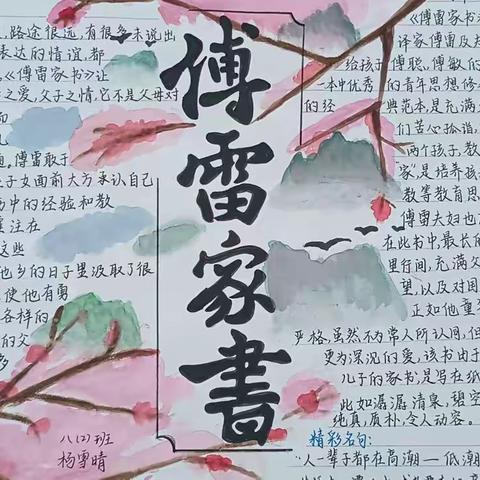 傅雷家書
路途很远,有很多未说出
表达的情谊,都
《傅雷家书》让
之爱,父子之情,它不是父母对
傅雷敢于
子女面前大方承认自己
中的经验和教
注在
这些
他乡的日子里汲取了很
使他有勇
各样的
的父
八(2)班
杨雪晴
《傅雷家书》
译家傅雷及
给孩子傅聪、傅敏的
一本中优秀的青年思想修
的经典范本,是充满
们苦心孤诣,
两个孩子,教
家”,是培养孩
教等教育思
傅雷夫妇也
在此书中,最长的
里行间,充满父
望,以及对国
正如他童
严格,虽然不为常人所认同,但
更为深沉的爱。该书由于
儿子的家书,是写在纸
此如潺潺清泉,碧空
纯真,质朴,令人动容。
精彩名句:
“人一辈子都在高潮—低潮